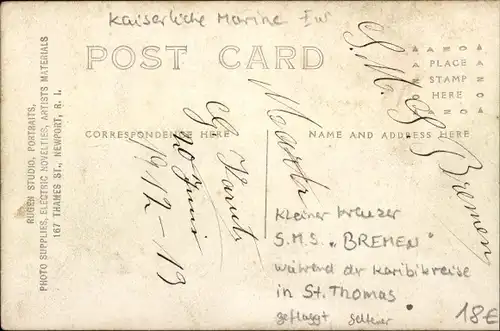 Kaiserliche Marine
POST CARD
PLACE
STAMP
HERE
S. M. S. Bremen
CORRESPONDENCE HERE
NAME AND ADDRESS HERE
RUGEN STUDIO, PORTRAITS,
PHOTO SUPPLIES, ELECTRIC NOVELTIES, ARTISTS MATERIALS
167 THAMES ST., NEWPORT, R. I.
1912-13
Kleiner Kreuzer
S.M.S. "BREMEN"
während der Karibikreise
in St. Thomas
geflaggt, seltener
18€